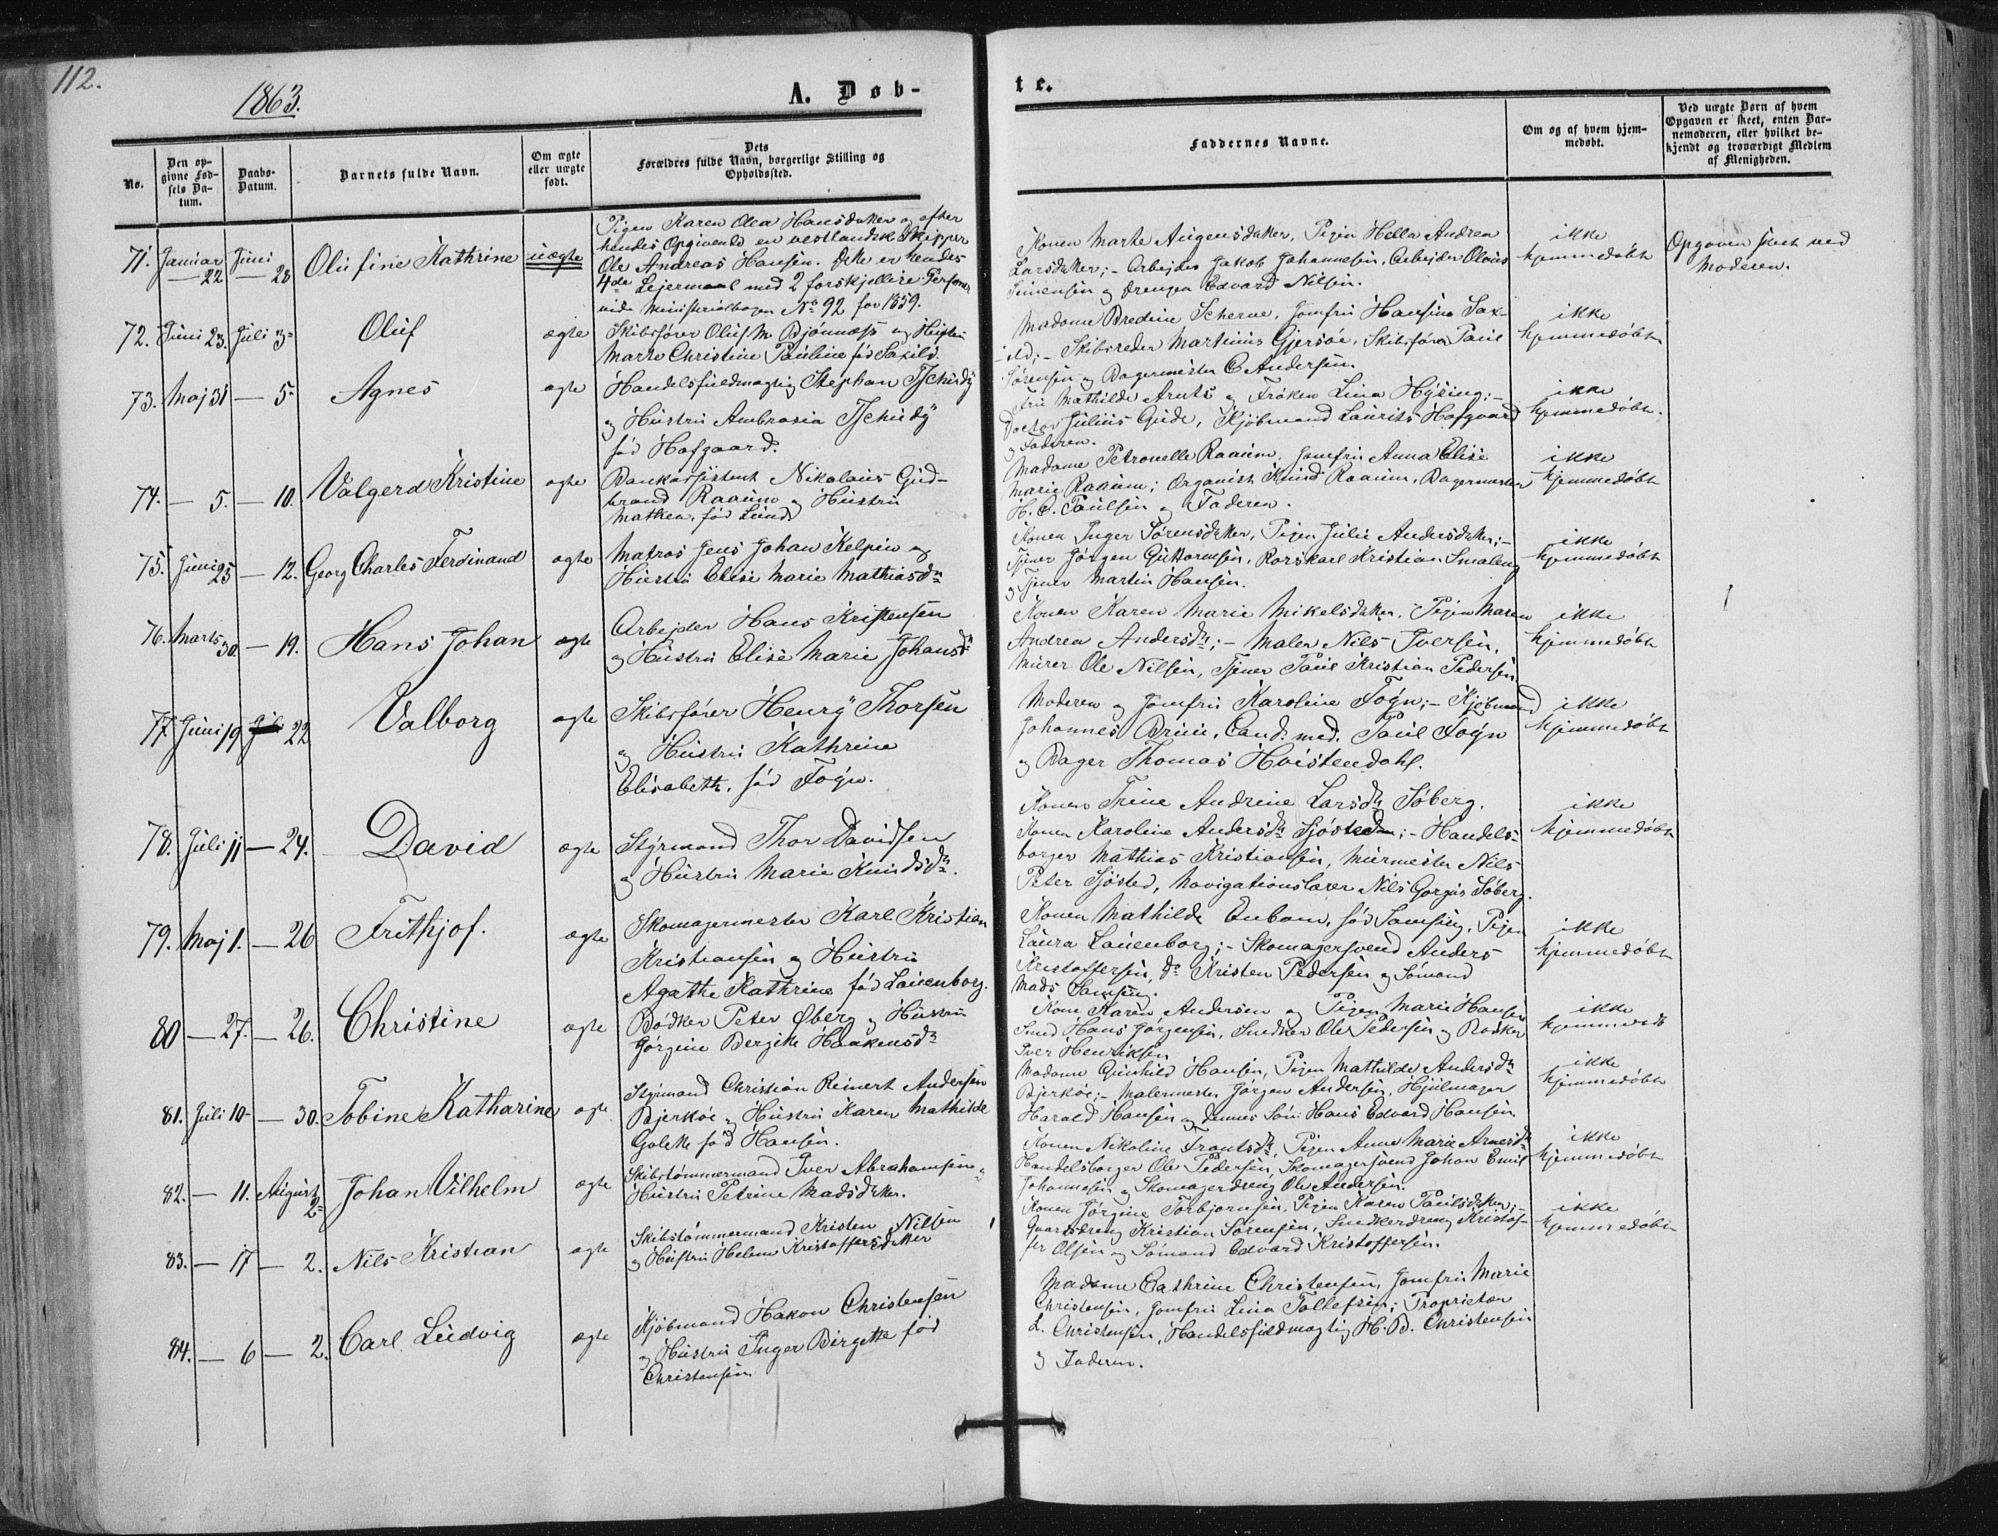 112.
1863.
A. Døb-
te.
No.
Den op-
givne Fød-
sels Da-
tum.
Daabs-
Datum.
Barnets fulde Navn.
Om ægte
eller uægte
født.
Dets
Forældres fulde Navn, borgerlige Stilling og
Opholdssted.
Faddernes Navne.
Om og af hvem hjem-
medøbt.
Ved uægte Børn af hvem
Opgaven er skeet, enten Bar-
nemoderen, eller hvilket be-
kjendt og troværdigt Medlem
af Menigheden.
71. Januar 22 Juni 28 Olufine Kathrine uægte
Pigen Karen Olea Hansdatter og efter
hendes Opgivende en vestlandsk Skipper
Ole Andreas Hansen. Dette er hendes
4de Leiermaal med 2 forskjellige Personer
vide Ministerialbogen No 92 for 1859.
Konen Marte Augensdatter, Pigen Hella Andrea
Larsdatter; - Arbejder Jakob Johannesen, Arbejder Olaus
Simensen og Drengen Edvard Nilsen.
ikke
hjemmedøbt
Opgaven skeet ved
Moderen.
72. Juni 23. Juli 3 Oluf ægte
Skibsfører Oluf M. Bjønnæss og Hustru
Marie Christine Pauline fød Saxild
Madame Bredine Scherve, Jomfru Hansine Sax-
ild; - Skibsreder Martinius Gjersøe, Skibsfører Paul
Sørensen og Bagermester C. Andersen.
ikke
hjemmedøbt
73. Maj 31 - 5 Agnes ægte
Handelsfuldmægtig Stephan Tschudÿ
og Hustru Ambrosia Tschudÿ
fød Hofgaard.
Fru Mathilde Arnts og Frøken Lina Hysing; -
Doctor Julius Gude, Kjøbmand Laurits Hofgaard
og Faderen.
ikke
hjemmedøbt.
74. - 5. - 10. Valgerd Kristine ægte
Bankassistent Nikolaus Gud-
brand Raaum og Hustru
Mathea, fød Lund
Madame Petronelle Raaum, Jomfru Anna Elise
Marie Raaum; Organist Knud Raaum, Bagermester
H. C. Paulsen og Faderen.
ikke
hjemmedøbt
75. Juni 25 - 12. Georg Charles Ferdinand ægte
Matros Jens Johan Kelpin og
Hustru Elise Marie Mathiasdr
Konen Inger Sørensdatter, Pigen Julie Andersdatter; -
Tjener Jørgen Guttormsen, Rorskarl Kristian Smaleng
og Tjener Martin Hansen.
ikke
hjemmedøbt
76. Marts 30. - 19. Hans Johan ægte
Arbejder Hans Kristensen
og Hustru Elise Marie Johansdr
Konen Karen Marie Mikelsdatter, Pigen Maren
Andrea Andersdr; - Maler Nils Iversen,
Murer Ole Nilsen, Tjener Paul Kristian Pedersen
ikke
hjemmedøbt
77. Juni 19 22 Valborg ægte
Skibsfører Henrÿ Thorsen
og Hustru Kathrine
Elisabeth, fød Fogn.
Moderen og Jomfru Karoline Fogn; - Kjøbmand
Johannes Bruu, Cand. med. Paul Fogn
og Bager Thomas Hvistendahl.
ikke
hjemmedøbt
78. Juli 11 - 24. David ægte
Styrmand Thor Davidsen
og Hustru Marie Knudsdr.
Konen Trine Andrine Larsdr Søberg,
Konen Karoline Andersdr Sjøsteden; - Handels-
borger Mathias Kristiansen, Murmester Nils
Peter Sjøsted, Navigationslærer Nils Gorgus Søberg.
ikke
hjemmedøbt
79. Maj 1. - 26 Frithjof. ægte
Skomagermester Karl Kristian
Kristiansen og Hustru
Agathe Kathrine fød Lauenborg.
Konen Mathilde Enbom, fød Samsing, Pigen
Laura Lauenborg; - Skomagersvend Anders
Kristoffersen, do Kristen Pedersen og Sømand
Mads Samsing.
ikke
hjemmedøbt
80 - 27. - 26. Christine ægte
Bødker Peter Øberg og Hustru
Jørgine Bergitte Haakensdr
Kone Karen Andersen og Pigen Marie Hansen
Smed Hans Jørgensen, Snedker Ole Pedersen og Bødker
Iver Henriksen
ikke
81. Juli 10 - 30. Tobine Katharine ægte
Styrmand Christian Reinert Andersen
Bjerkøe og Hustru Karen Mathilde
Golette fød Hansen.
Madame Gunhild Hansen, Pigen Mathilde Andersdr
Bjerkøe; - Malermester Jørgen Andersen, Hjulmager
Harald Hansen og dennes Søn Hans Edvard Hansen.
ikke
hjemmedøbt
82. - 11. August 2 Johan Vilhelm ægte
Skibstømmermand Iver Abrahamsen og
Hustru Petrine Madsdatter.
Konen Nikoline Frantsdr, Pigen Anne Marie Arnesdr
Handelsborger Ole Pedersen, Skomagersvend Johan Emil
Johannesen og Skomagerdreng Ole Andersen.
ikke
hjemmedøbt
83. - 17 - 2. Nils Kristian ægte
Skibstømmermand Kristen Nilsen
og Hustru Helene Kristoffersdatter
Konen Jørgine Torbjørnsen, Pigen Karen Paulsdatter; -
Gaardsdreng Kristian Sørensen, Snedkerdreng Kristof-
fer Olsen og Sømand Edvard Kristoffersen.
ikke
hjemmedøbt
84. - 6 - 2. Carl Ludvig ægte
Kjøbmand Hakon Christensen
og Hustru Inger Birgette fød
Christensen
Madame Cathrine Christensen, Jomfru Marie
Christensen, Jomfru Lina Tollefsen; Proprietær
L. Christensen, Handelsfuldmægtig H. B. Christensen
og Faderen.